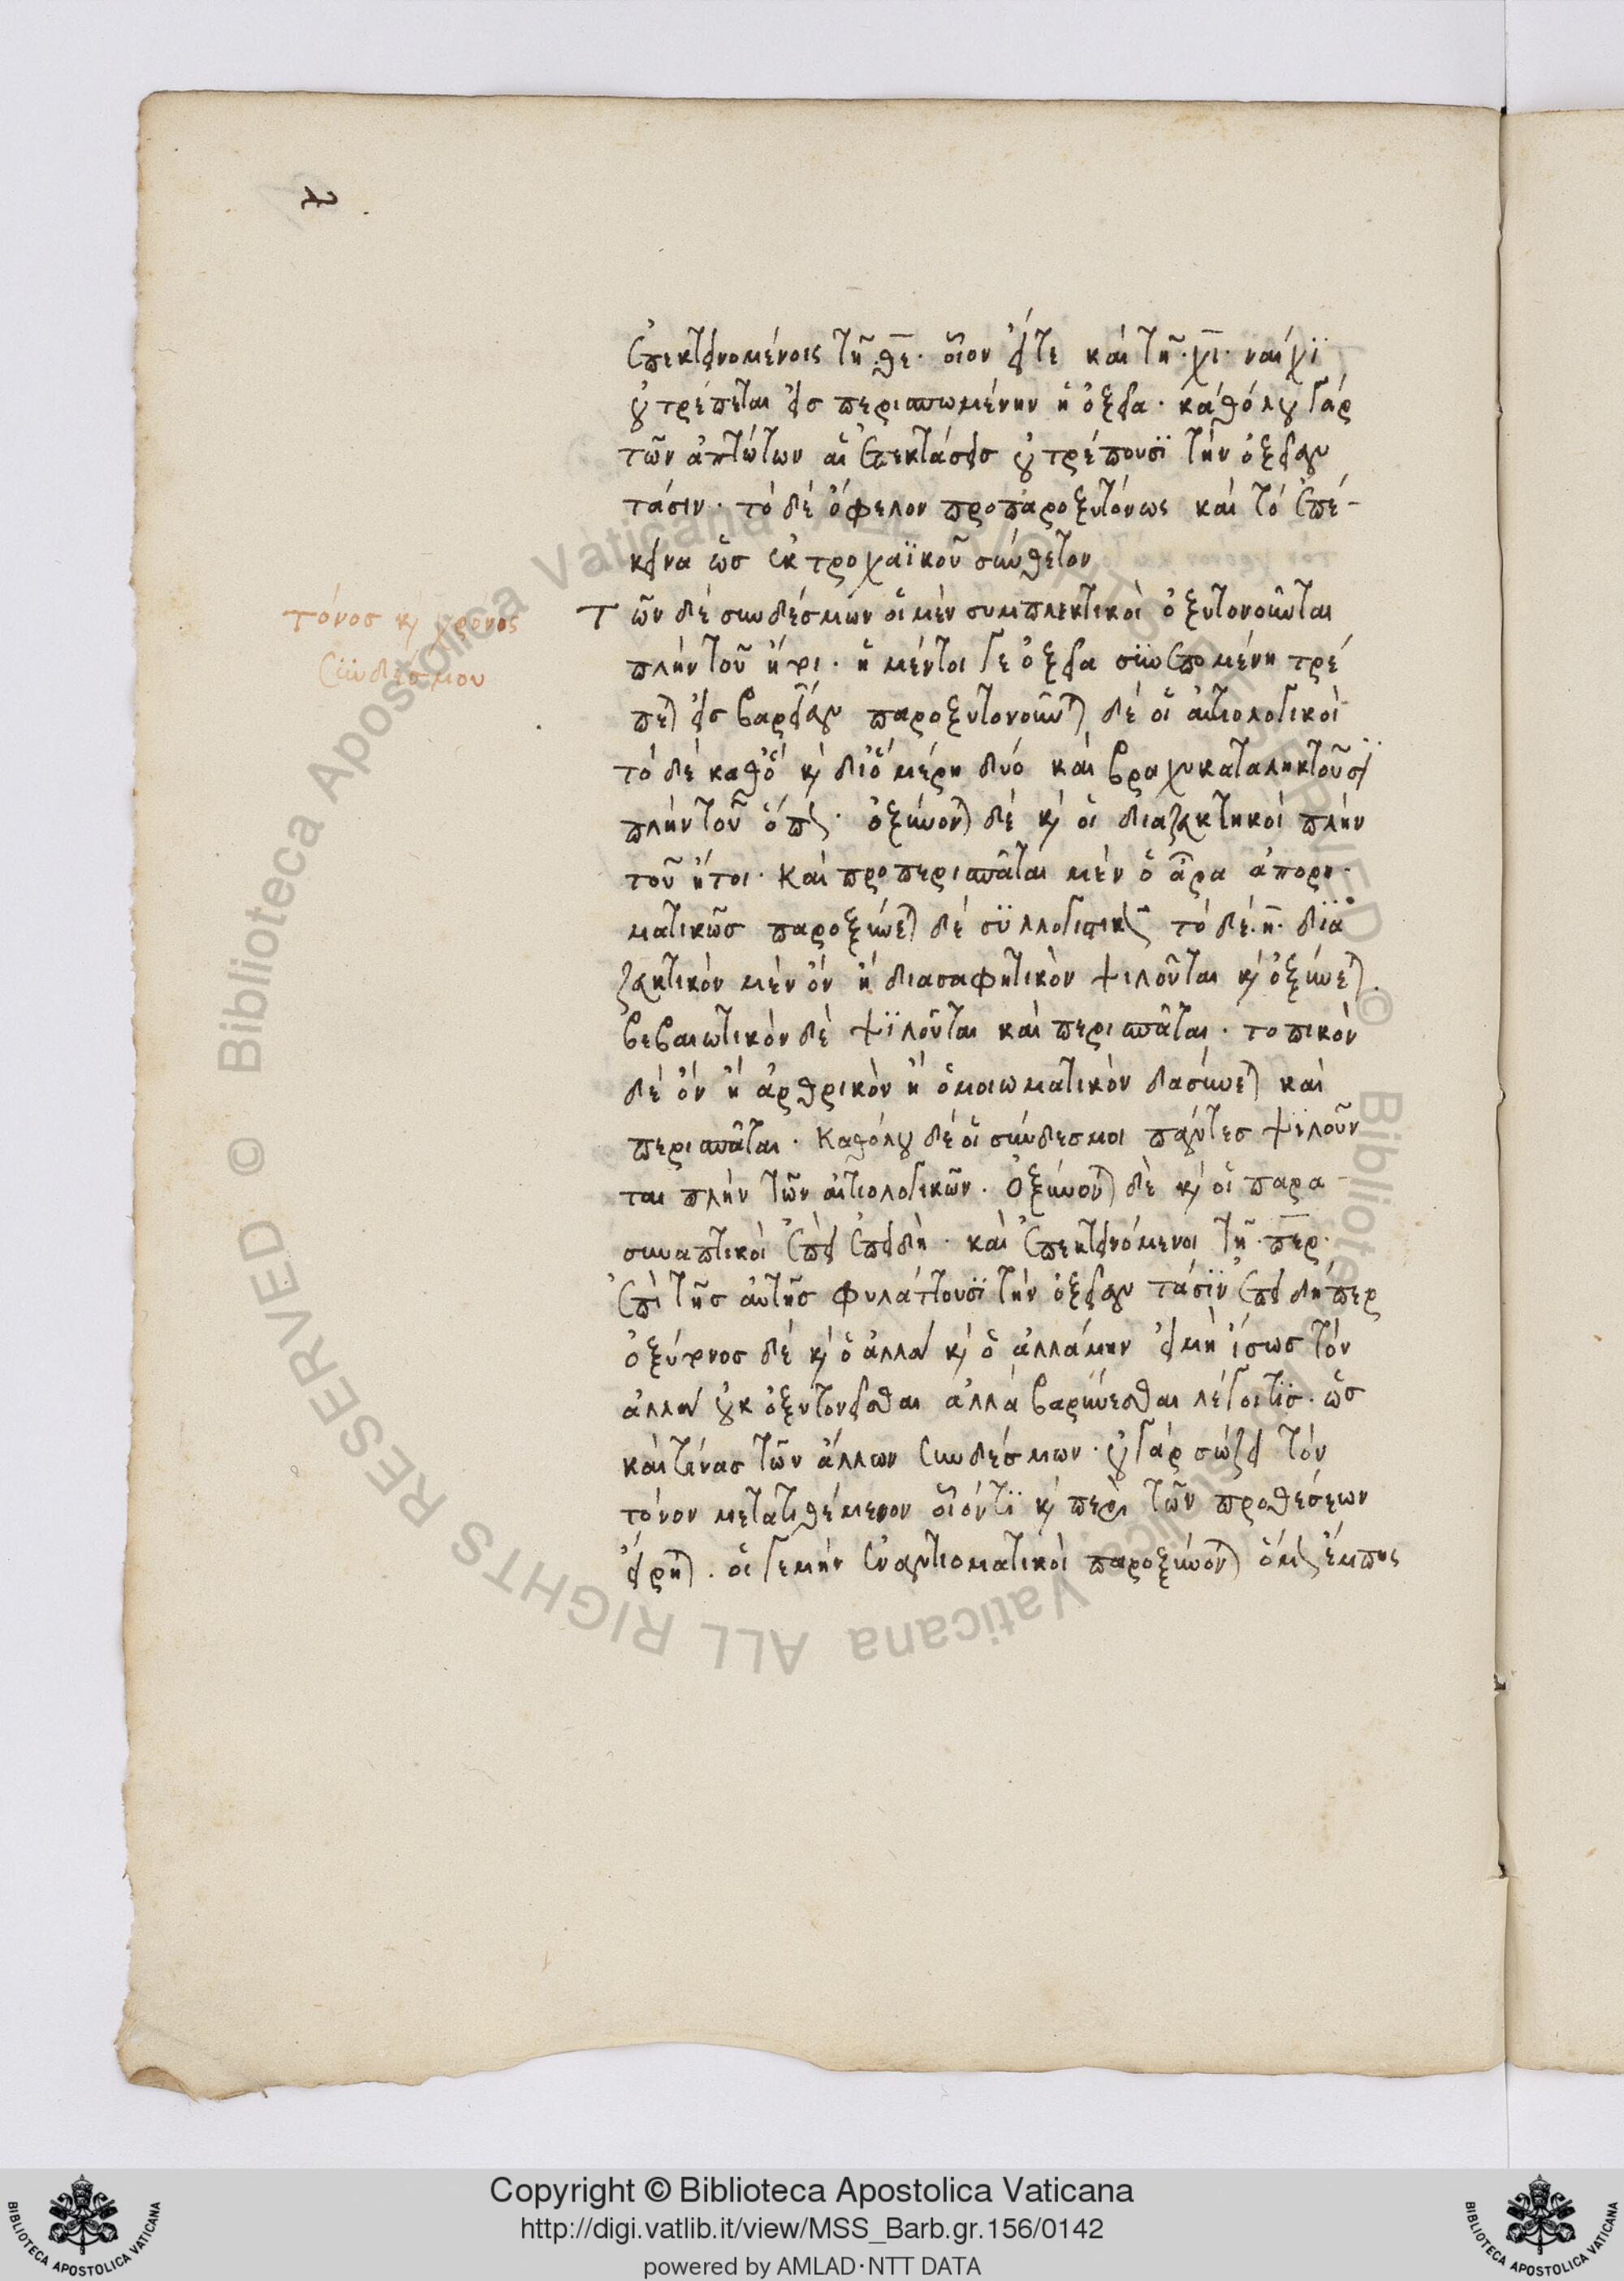 ἐπεκτεινομένοις τῆ .θε. οἷον εἴτε καὶ τῆ .χι. ναίχϊ
οὐ τρέπεται εἰς περισπωμένην ἡ ὀξεῖα. καθόλου γάρ
τῶν ἀπτώτων αἱ ἐπεκτάσεις οὐ τρέπουσϊ τὴν ὀξεῖαν
τάσιν. τὸ δέ ὄφελον προπαροξυτόνως καὶ τὸ ἐπέ-
κεινα ὡς ἐκ τροχαϊκοῦ σύνθετον
τόνος κ χρόνος
συνδέσμου
Τῶν δέ συνδέσμων οἱ μὲν συμπλεκτικοὶ ὀξυτονοῦνται
πλὴν τοῦ ἤτοι. ἡ μέντοι γε ὀξεῖα συνεπομένη τρέ
πεται εἰς βαρεῖαν παροξυτονοῦνται δέ οἱ αἰτιολογικοὶ
τὸ δέ καθό κ διό μέρη δύο καὶ βραχυκαταληκτοῦσι
πλὴν τοῦ ὅπως. ὀξύνονται δέ κ οἱ διαζευκτηκοί πλὴν
τοῦ ἤτοι. καὶ προπερισπᾶται μὲν ὁ ἆρα ἀπορη-
ματικῶς παροξύνεται δέ συλλογιστικῶς τὸ δέ .η. δϊα
ζευκτικὸν μὲν ὄν ἤ διασαφητικὸν ψιλοῦται κ ὀξύνεται.
βεβαιωτικὸν δὲ ψϊλοῦται καὶ περισπᾶται. τοπικὸν
δέ ὄν ἤ ἀρθρικὸν ἤ ὁμοιωματικὸν δασύνεται καὶ
περισπᾶται. Καθόλου δέ οἱ σύνδεσμοι πάντες ψϊλοῦν
ται πλὴν τῶν αἰτιολογικῶν. ὀξύνονται δὲ κ οἱ παρα-
συναπτικοὶ ἐπεὶ ἐπειδὴ. καὶ ἐπεκτεινόμενοι τῆ .περ.
ἐπὶ τῆς αὐτῆς φυλάττουσϊ τὴν ὀξεῖαν τάσϊν ἐπειδήπερ
ὀξύτονος δέ κ ὁ ἀλλά κ ὁ ἀλλάμην εἰμὴ ἴσως τὸν
ἀλλά οὐκ ὀξυτονεῖσθαι ἀλλὰ βαρύνεσθαι λέγοι τϊς. ὡς
καὶ τινας τῶν ἄλλων συνδέσμων. οὐ γάρ σώζει τὸν
τόνον μετατιθέμενον οἱόντϊ κ περὶ τῶν προθέσεων
εἴρηται. οἱ γεμὴν ἐναντιοματικοὶ παροξύνονται ὅμως ἔμπης